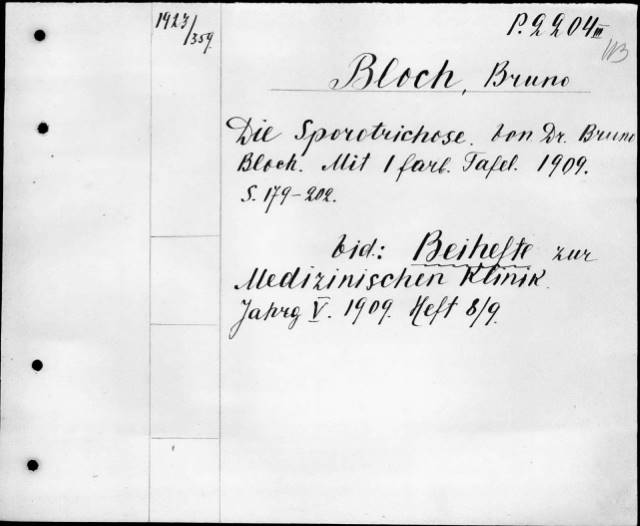 1927/359.
P. 2204 III
WB
Bloch, Bruno
Die Sporotrichose. Von Dr. Bruno
Bloch. Mit 1 farb. Tafel. 1909.
S. 179-202.
Vid.: Beihefte zur
Medizinischen Klinik.
Jahrg V. 1909. Heft 8/9.